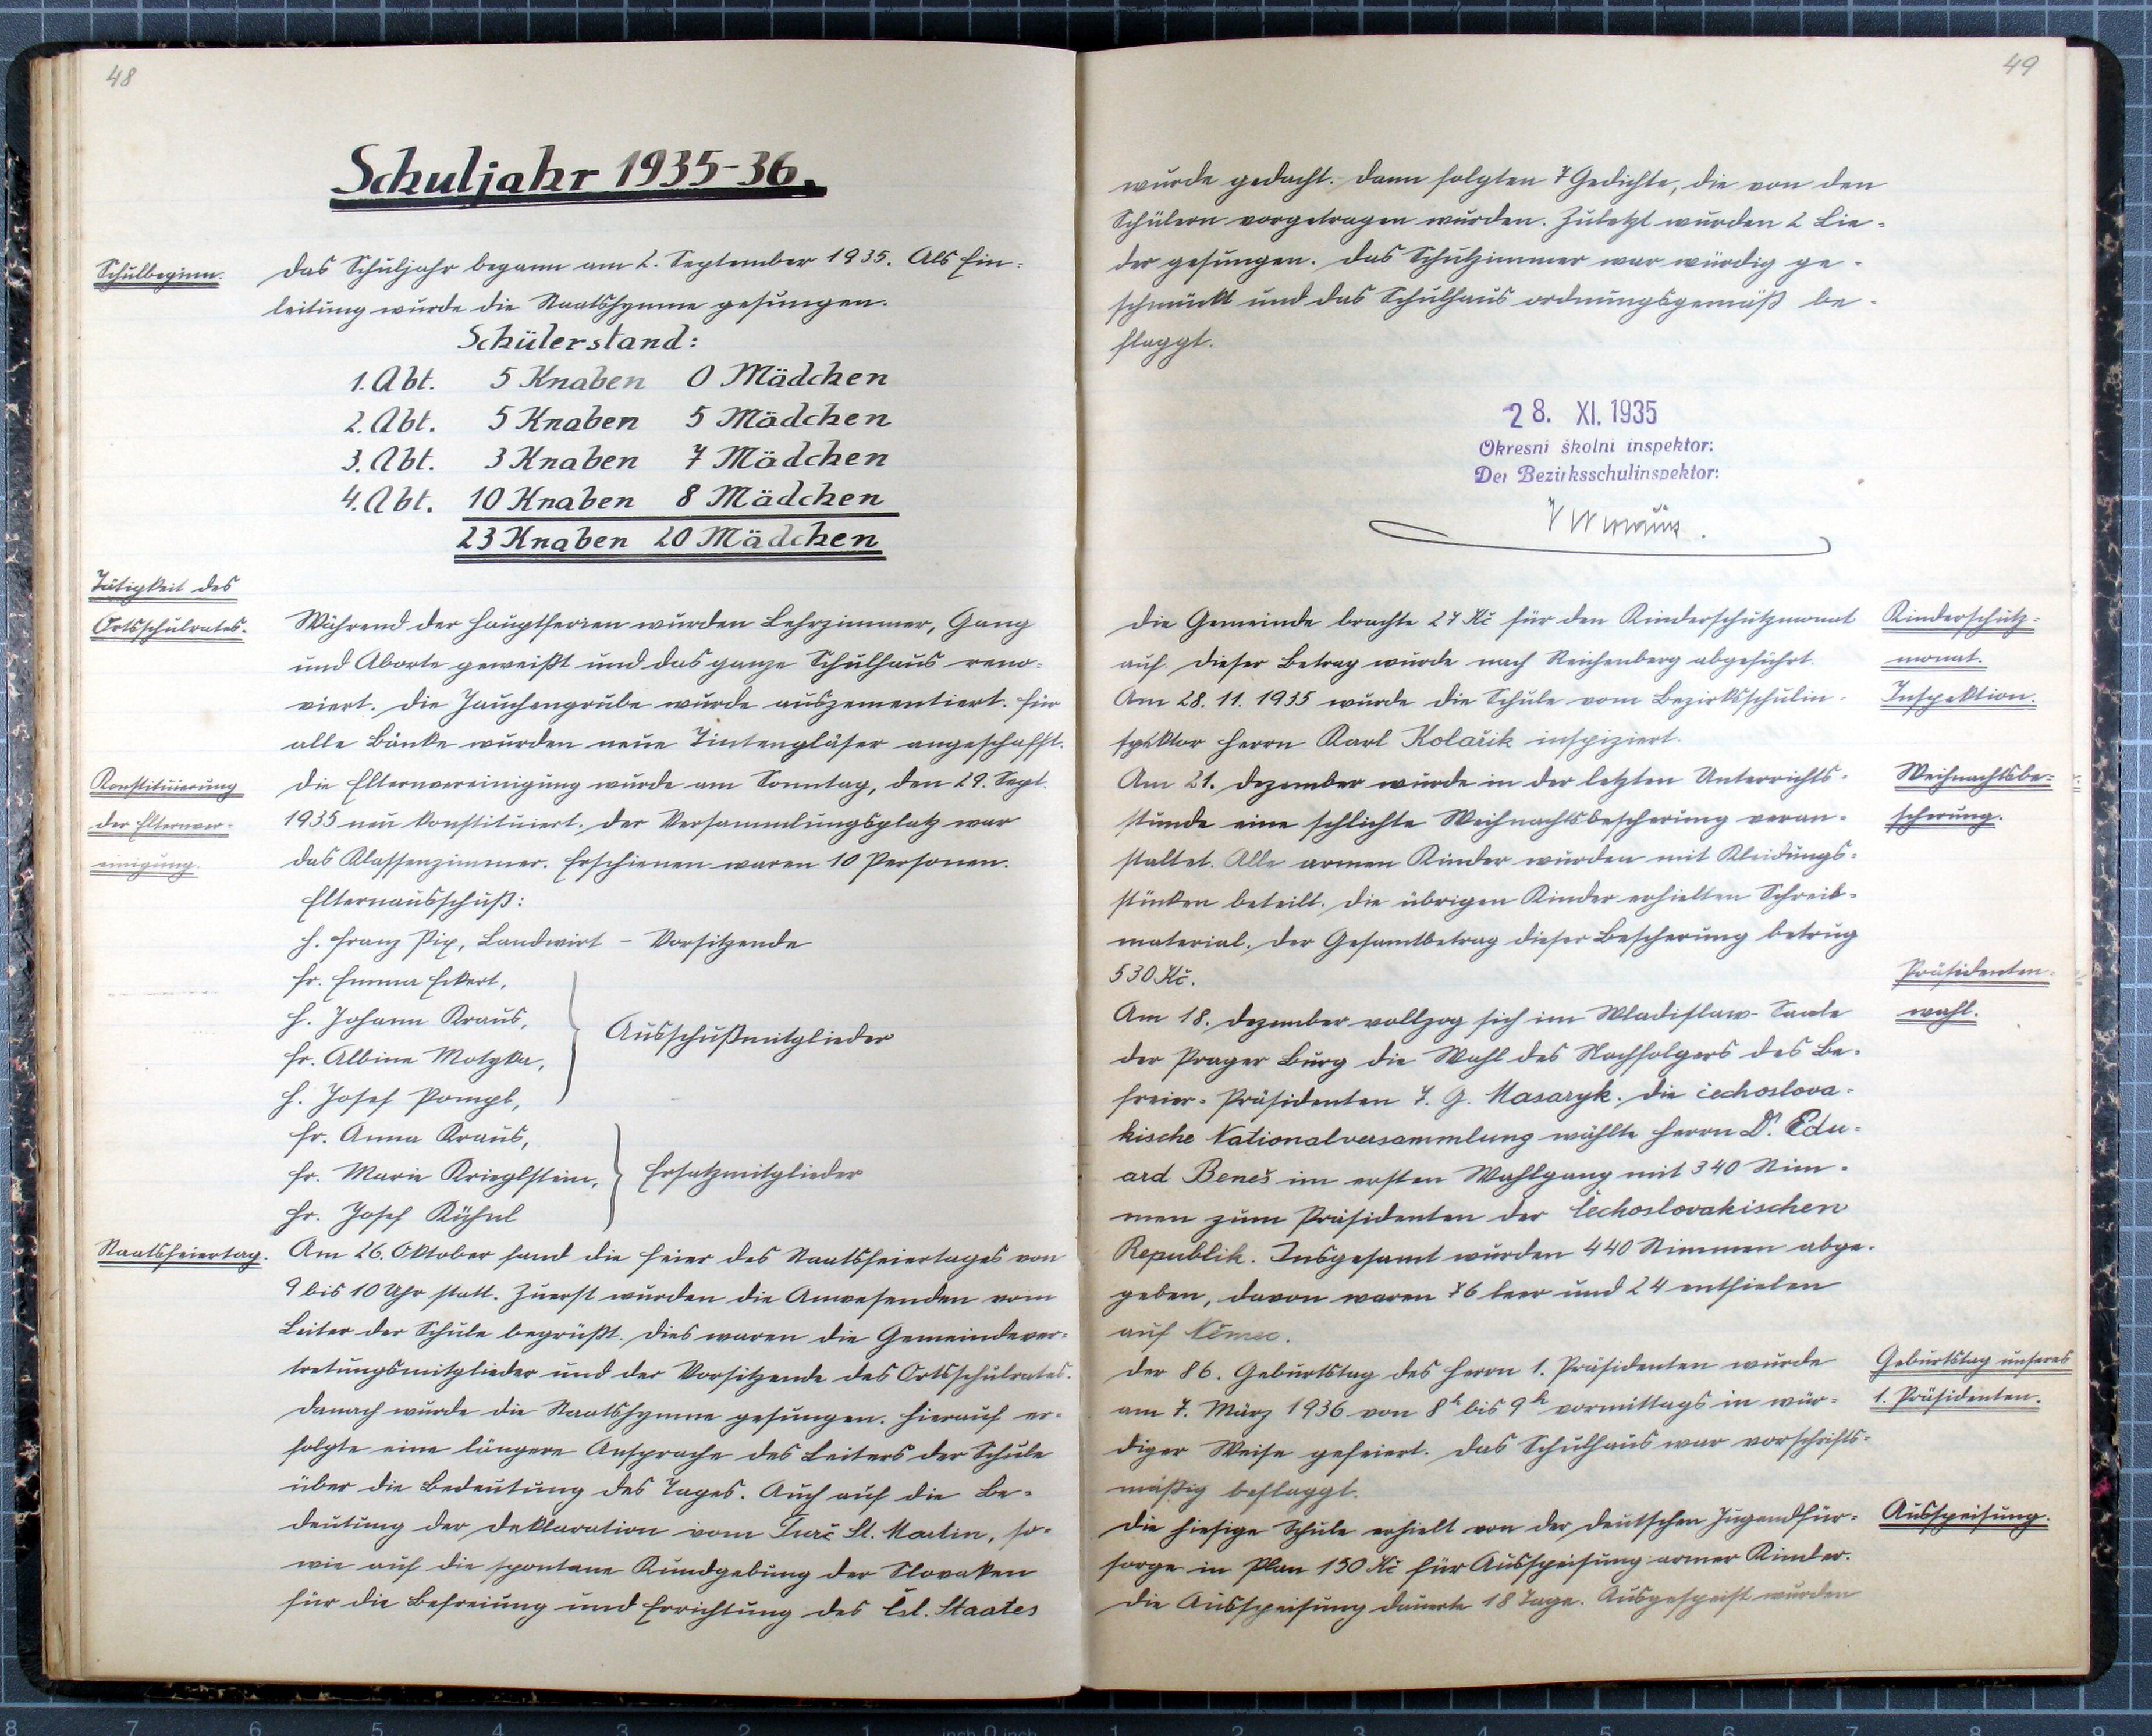 48
Schuljahr 1935-36.
Schulbeginn.
Das Schuljahr begann am 2. September 1935. Als Ein-
leitung wurde die Staatshymne gesungen.
Schülerstand:
1. Abt. 5 Knaben 0 Mädchen
2. Abt. 5 Knaben 5 Mädchen
3. Abt. 3 Knaben 7 Mädchen
4. Abt. 10 Knaben 8 Mädchen
23 Knaben 20 Mädchen
Tätigkeit des
Ortsschulrates.
Während der Hauptferien wurden Lehrzimmer, Gang
und Aborte geweißt und das ganze Schulhaus reno-
viert. Die Jauchengrube wurde auszementiert. Für
alle Bänke wurden neue Tintengläser angeschafft.
Konstituierung
der Elternver-
einigung.
Die Elternvereinigung wurde am Sonntag, den 29. Sept.
1935 neu konstituiert. Der Versammlungsplatz war
das Klassenzimmer. Erschienen waren 10 Personen.
Elternausschuß:
H. Franz Pix, Landwirt - Vorsitzende
Fr. Emma Eckert,
H. Johann Kraus,
Fr. Albine Motzka,
H. Josef Pompl,
Ausschußmitglieder
Fr. Anna Kraus,
Fr. Marie Krieglstein,
Hr. Josef Kühnl
Ersatzmitglieder
Staatsfeiertag.
Am 26. Oktober fand die Feier des Staatsfeiertages von
9 bis 10 Uhr statt. Zuerst wurden die Anwesenden vom
Leiter der Schule begrüßt. Dies waren die Gemeindever-
tretungsmitglieder und der Vorsitzende des Ortsschulrates.
Danach wurde die Staatshymne gesungen. Hierauf er-
folgte eine längere Ansprache des Leiters der Schule
über die Bedeutung des Tages. Auch auf die Be-
deutung der Deklaration vom Turč St. Martin, so-
wie auf die spontane Kundgebung der Slovaken
für die Befreiung und Errichtung des čsl. Staates
49
wurde gedacht. Dann folgten 7 Gedichte, die von den
Schülern vorgetragen wurden. Zuletzt wurden 2 Lie-
der gesungen. Das Schulzimmer war würdig ge-
schmückt und das Schulhaus ordnungsgemäß be-
flaggt.
28. XI. 1935
Okresní školní inspektor:
Der Bezirksschulinspektor:
Die Gemeinde brachte 27 Kč für den Kinderschutzmonat
auf. Dieser Betrag wurde nach Reichenberg abgeführt.
Kinderschutz-
monat.
Am 28. 11. 1935 wurde die Schule vom Bezirksschulin-
spektor Herrn Karl Kolařik inspiziert.
Inspektion.
Am 21. Dezember wurde in der letzten Unterrichts-
stunde eine schlichte Weihnachtsbescherung veran-
staltet. Alle armen Kinder wurden mit Kleidungs-
stücken beteilt. Die übrigen Kinder erhielten Schreib-
material. Der Gesamtbetrag dieser Bescherung betrug
530 Kč.
Weihnachtsbe-
scherung.
Präsidenten-
wahl.
Am 18. Dezember vollzog sich im Wladislaw-Saale
der Prager Burg die Wahl des Nachfolgers des Be-
freier-Präsidenten T. G. Masaryk. Die čechoslova-
kische Nationalversammlung wählte Herrn Dr. Edu-
ard Beneš im ersten Wahlgang mit 340 Stim-
men zum Präsidenten der čechoslovakischen
Republik. Insgesamt wurden 440 Stimmen abge-
geben, davon waren 76 leer und 24 entfielen
auf Němec.
Der 86. Geburtstag des Herrn 1. Präsidenten wurde
am 7. März 1936 von 8h bis 9h vormittags in wür-
diger Weise gefeiert. Das Schulhaus war vorschrifts-
mäßig beflaggt.
Geburtstag unseres
1. Präsidenten.
Die hiesige Schule erhielt von der deutschen Jugendfür-
sorge in Plan 150 Kč für Ausspeisung armer Kinder.
Die Ausspeisung dauerte 18 Tage. Ausgespeist wurden
Ausspeisung.
8 7 6 5 4 3 2 1 inch 0 inch 1 2 3 4 5 6 7 8 9